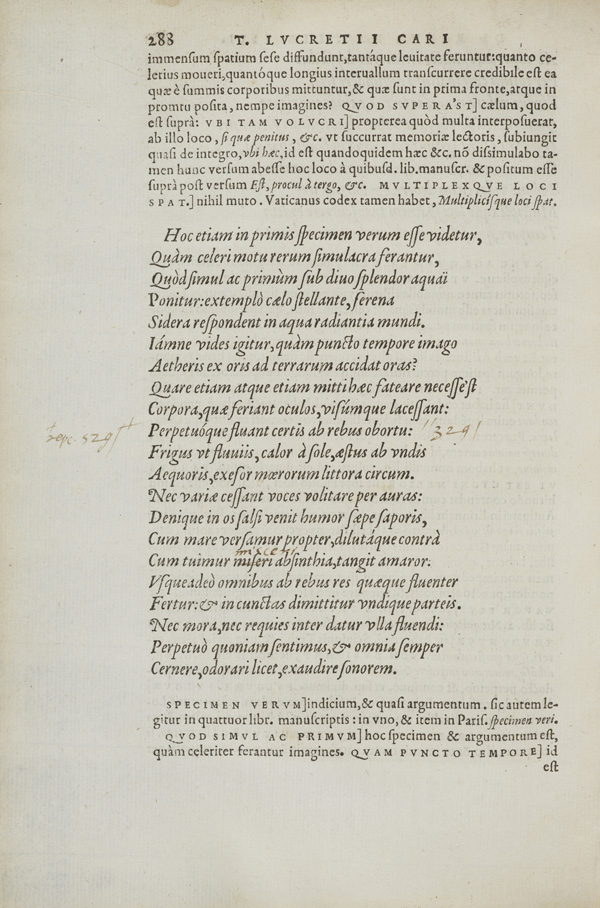 288 T. LVCRETII CARI
immensum spatium sese diffundunt, tantáque leuitate feruntur: quanto ce-
lerius moueri, quantóque longius interuallum transcurrere credibile est ea
quæ è summis corporibus mittuntur, & quæ sunt in prima fronte, atque in
promtu posita, nempe imagines? QVOD SVPERA'ST] cælum, quod
est suprà: VBI TAM VOLVCRI] propterea quòd multa interposuerat,
ab illo loco, si quæ penitus, &c. vt succurrat memoriæ lectoris, subiungit
quasi de integro, vbi hæc, id est quandoquidem hæc &c. nō dissimulabo ta-
men hunc versum abesse hoc loco à quibusd. lib. manuscr. & positum esse
suprà post versum Est, procul à tergo, &c. MVLTIPLEXQVE LOCI
SPAT.] nihil muto. Vaticanus codex tamen habet, Multiplicísque loci spat.
Hoc etiam in primis specimen verum esse videtur,
Quàm celeri motu rerum simulacra ferantur,
Quòd simul ac primùm sub diuo splendor aquaï
Ponitur: extemplò cælo stellante, serena
Sidera respondent in aqua radiantia mundi.
Iámne vides igitur, quàm puncto tempore imago
Aetheris ex oris ad terrarum accidat oras?
Quare etiam atque etiam mitti hæc fateare necesse'st
Corpora, quæ feriant oculos, visúmque lacessant:
repe. 529 Perpetuóque fluant certis ab rebus obortu: 329
Frigus vt fluuiis, calor à sole, æstus ab vndis
Aequoris, exesor mœrorum littora circum.
Nec variæ cessant voces volitare per auras:
Denique in os salsi venit humor sæpe saporis,
Cum mare versamur propter, dilutáque contrà
misceri
Cum tuimur miseri absinthia, tangit amaror.
Vsqueadeò omnibus ab rebus res quæque fluenter
Fertur: & in cunctas dimittitur vndique parteis.
Nec mora, nec requies inter datur vlla fluendi:
Perpetuò quoniam sentimus, & omnia semper
Cernere, odorari licet, exaudire sonorem.
SPECIMEN VERVM] indicium, & quasi argumentum. sic autem le-
gitur in quattuor libr. manuscriptis: in vno, & item in Paris. specimen veri.
QVOD SIMVL AC PRIMVM] hoc specimen & argumentum est,
quàm celeriter ferantur imagines. QVAM PVNCTO TEMPORE] id
est